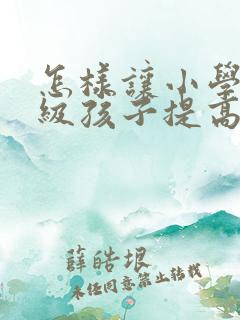 怎樣讓小學
級孩子提高
薛皓垠
未经同意禁止转载